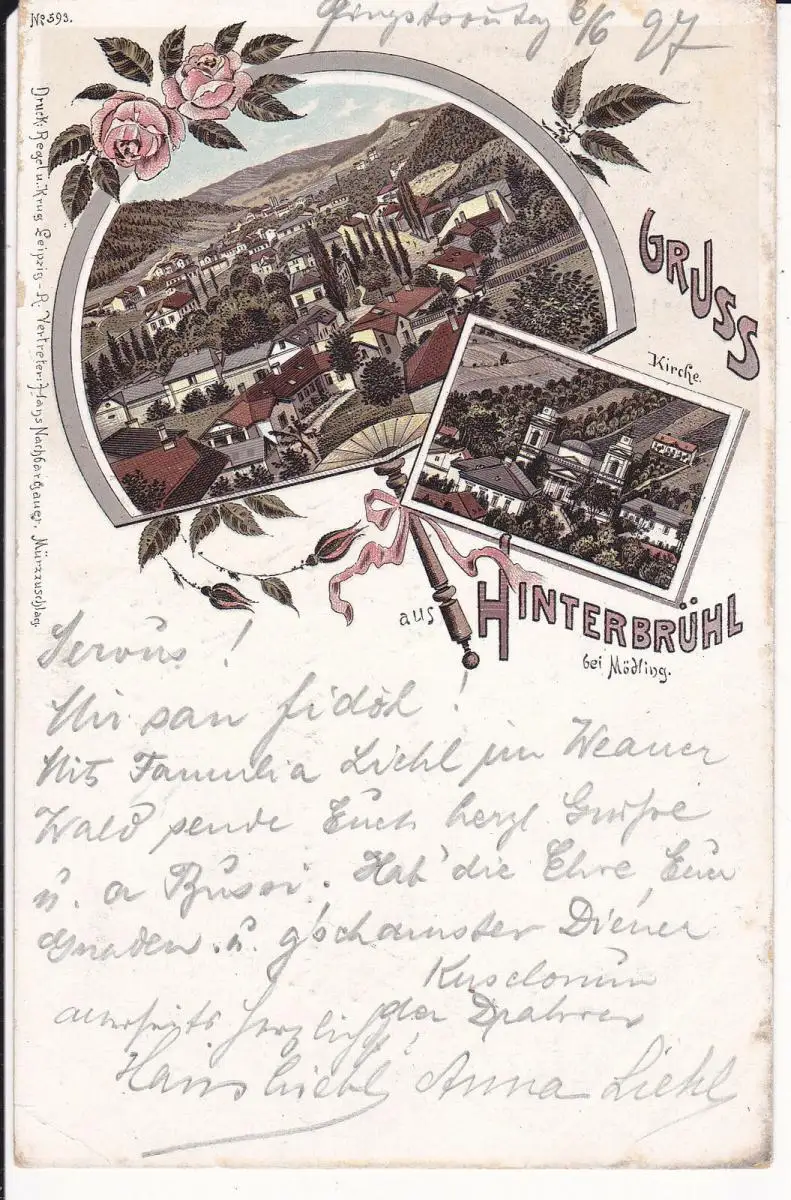 No 593.
Pfingstsonntag 6/6 97
Druck: Regel u. Krug Leipzig - R. Vertreter: Hans Nachbargauer. Mürzzuschlag.
GRUSS
Kirche.
aus HINTERBRÜHL
bei Mödling.
Servus !
Mir san fidöl !
Mit Familia Liehl im Weaner
Wald sende Euch herzl Grüße
u. a Bussi. Hab' die Ehre, Euer
Gnaden u. g'schamster Diener
der Drahrer
allerseits herzlichst
Hans Liehl Anna Liehl